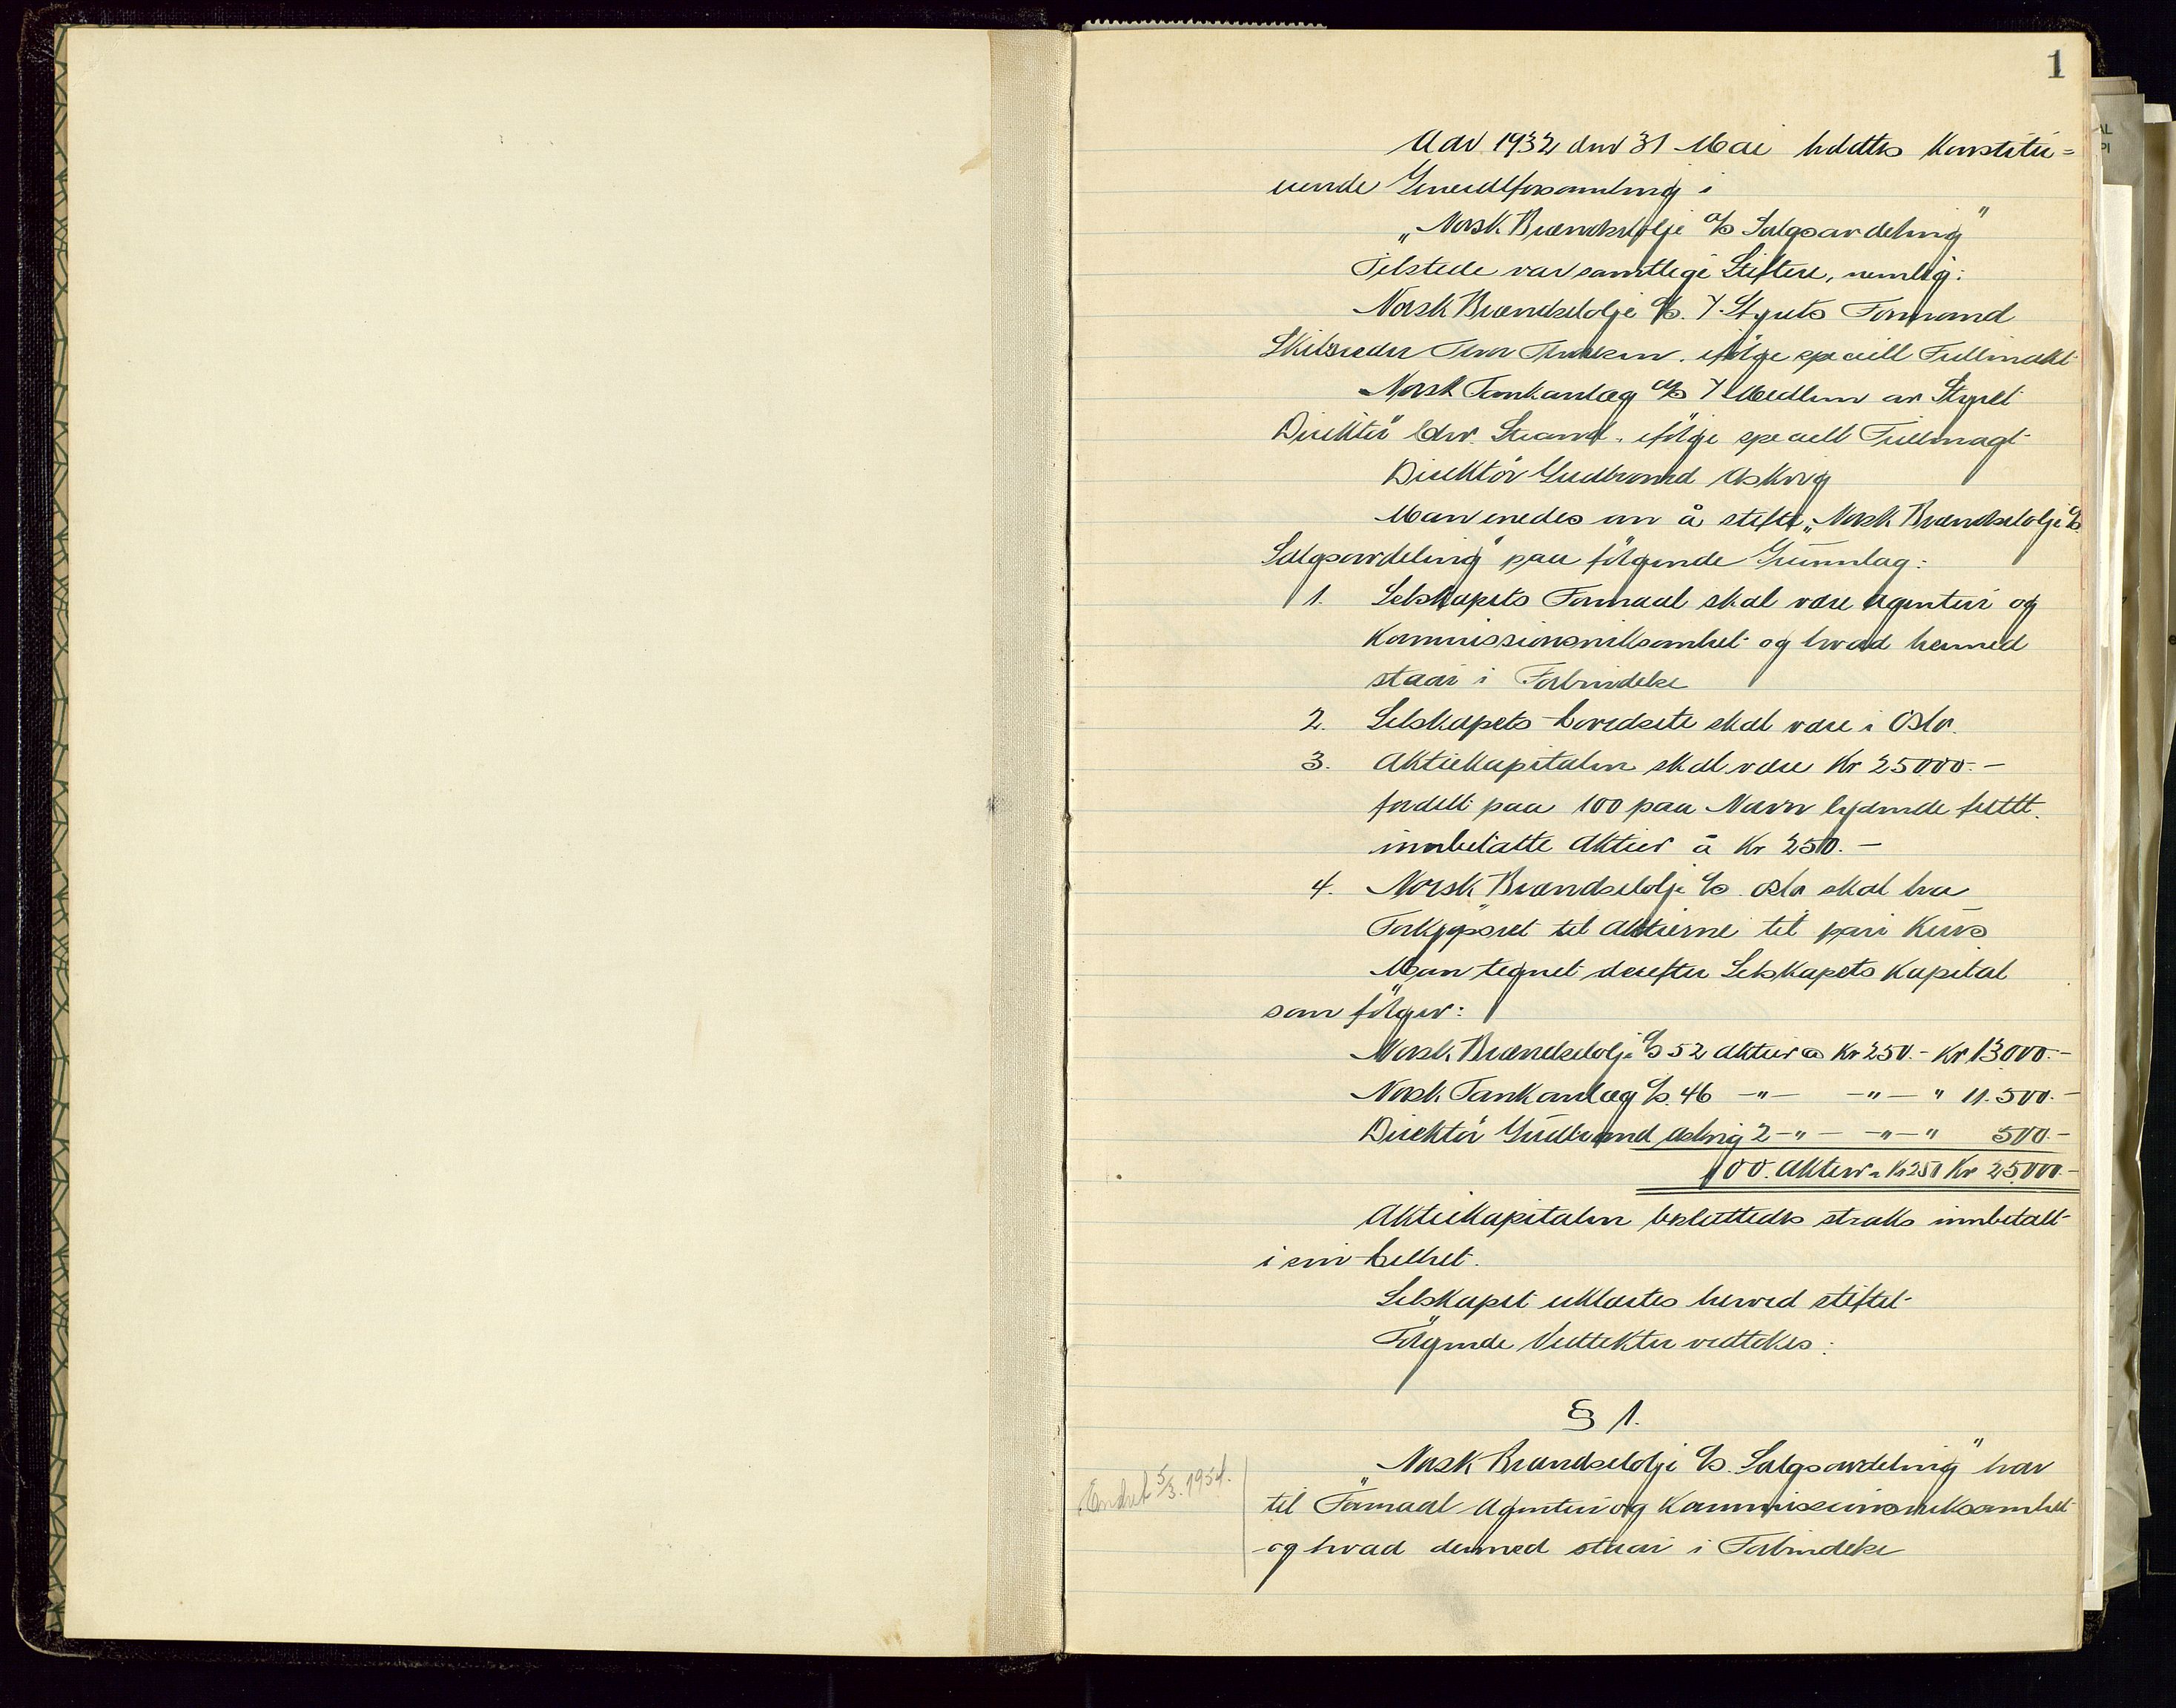 1
Aar 1932 den 31 Mai holdtes Konstitu=
erende Generalforsamling i
"Norsk Brændselolje A/S Salgsavdeling"
Tilstede var samtlige Stiftere, nemlig:
Norsk Brændselolje A/S. v/ Styrets Formand
Skibsreder ifölge speciell Fullmakt
Norsk Tankanlæg A/S v/ Medlem av Styret
Direktör Strand. ifölge speciell Fullmagt
Direktör Gudbrand Askvig
Man enedes om å stifte "Norsk Brændselolje A/S
Salgsavdeling" paa fölgende Grunnlag:
1. Selskapets Formaal skal være Agentur og
Kommissionsvirksomhet og hvad hermed
staar i Forbindelse
2. Selskapets Hovedsete skal være i Oslo.
3. Aktiekapitalen skal være Kr 25000.-
fordelt paa 100 paa Navn lydende fuldt
innbetalte Aktier à Kr 250.-
4. Norsk Brændselolje A/S Oslo skal ha
Forkjøpsret til Aktierne til pari Kurs
Man tegnet derefter Selskapets Kapital
som fölger:
Norsk Brændselolje A/S 52 Aktier à Kr 250.- Kr 13000.-
Norsk Tankanlæg A/S. 46 -"- -"- " 11.500.-
Direktör Gudbrand Askvig 2 -"- -"- " 500.-
100. Aktier à Kr 250 Kr 25.000.-
Aktiekapitalen besluttedes straks innbetalt
i sin Helhet.
Selskapet erklærtes herved stiftet
Fölgende Vedtekter vedtokes:
§ 1.
"Norsk Brændselolje A/S. Salgsavdeling" har
Endret 5/3. 1954.
til Formaal Agentur og Kommissionsvirksomhet
og hvad dermed staar i Forbindelse